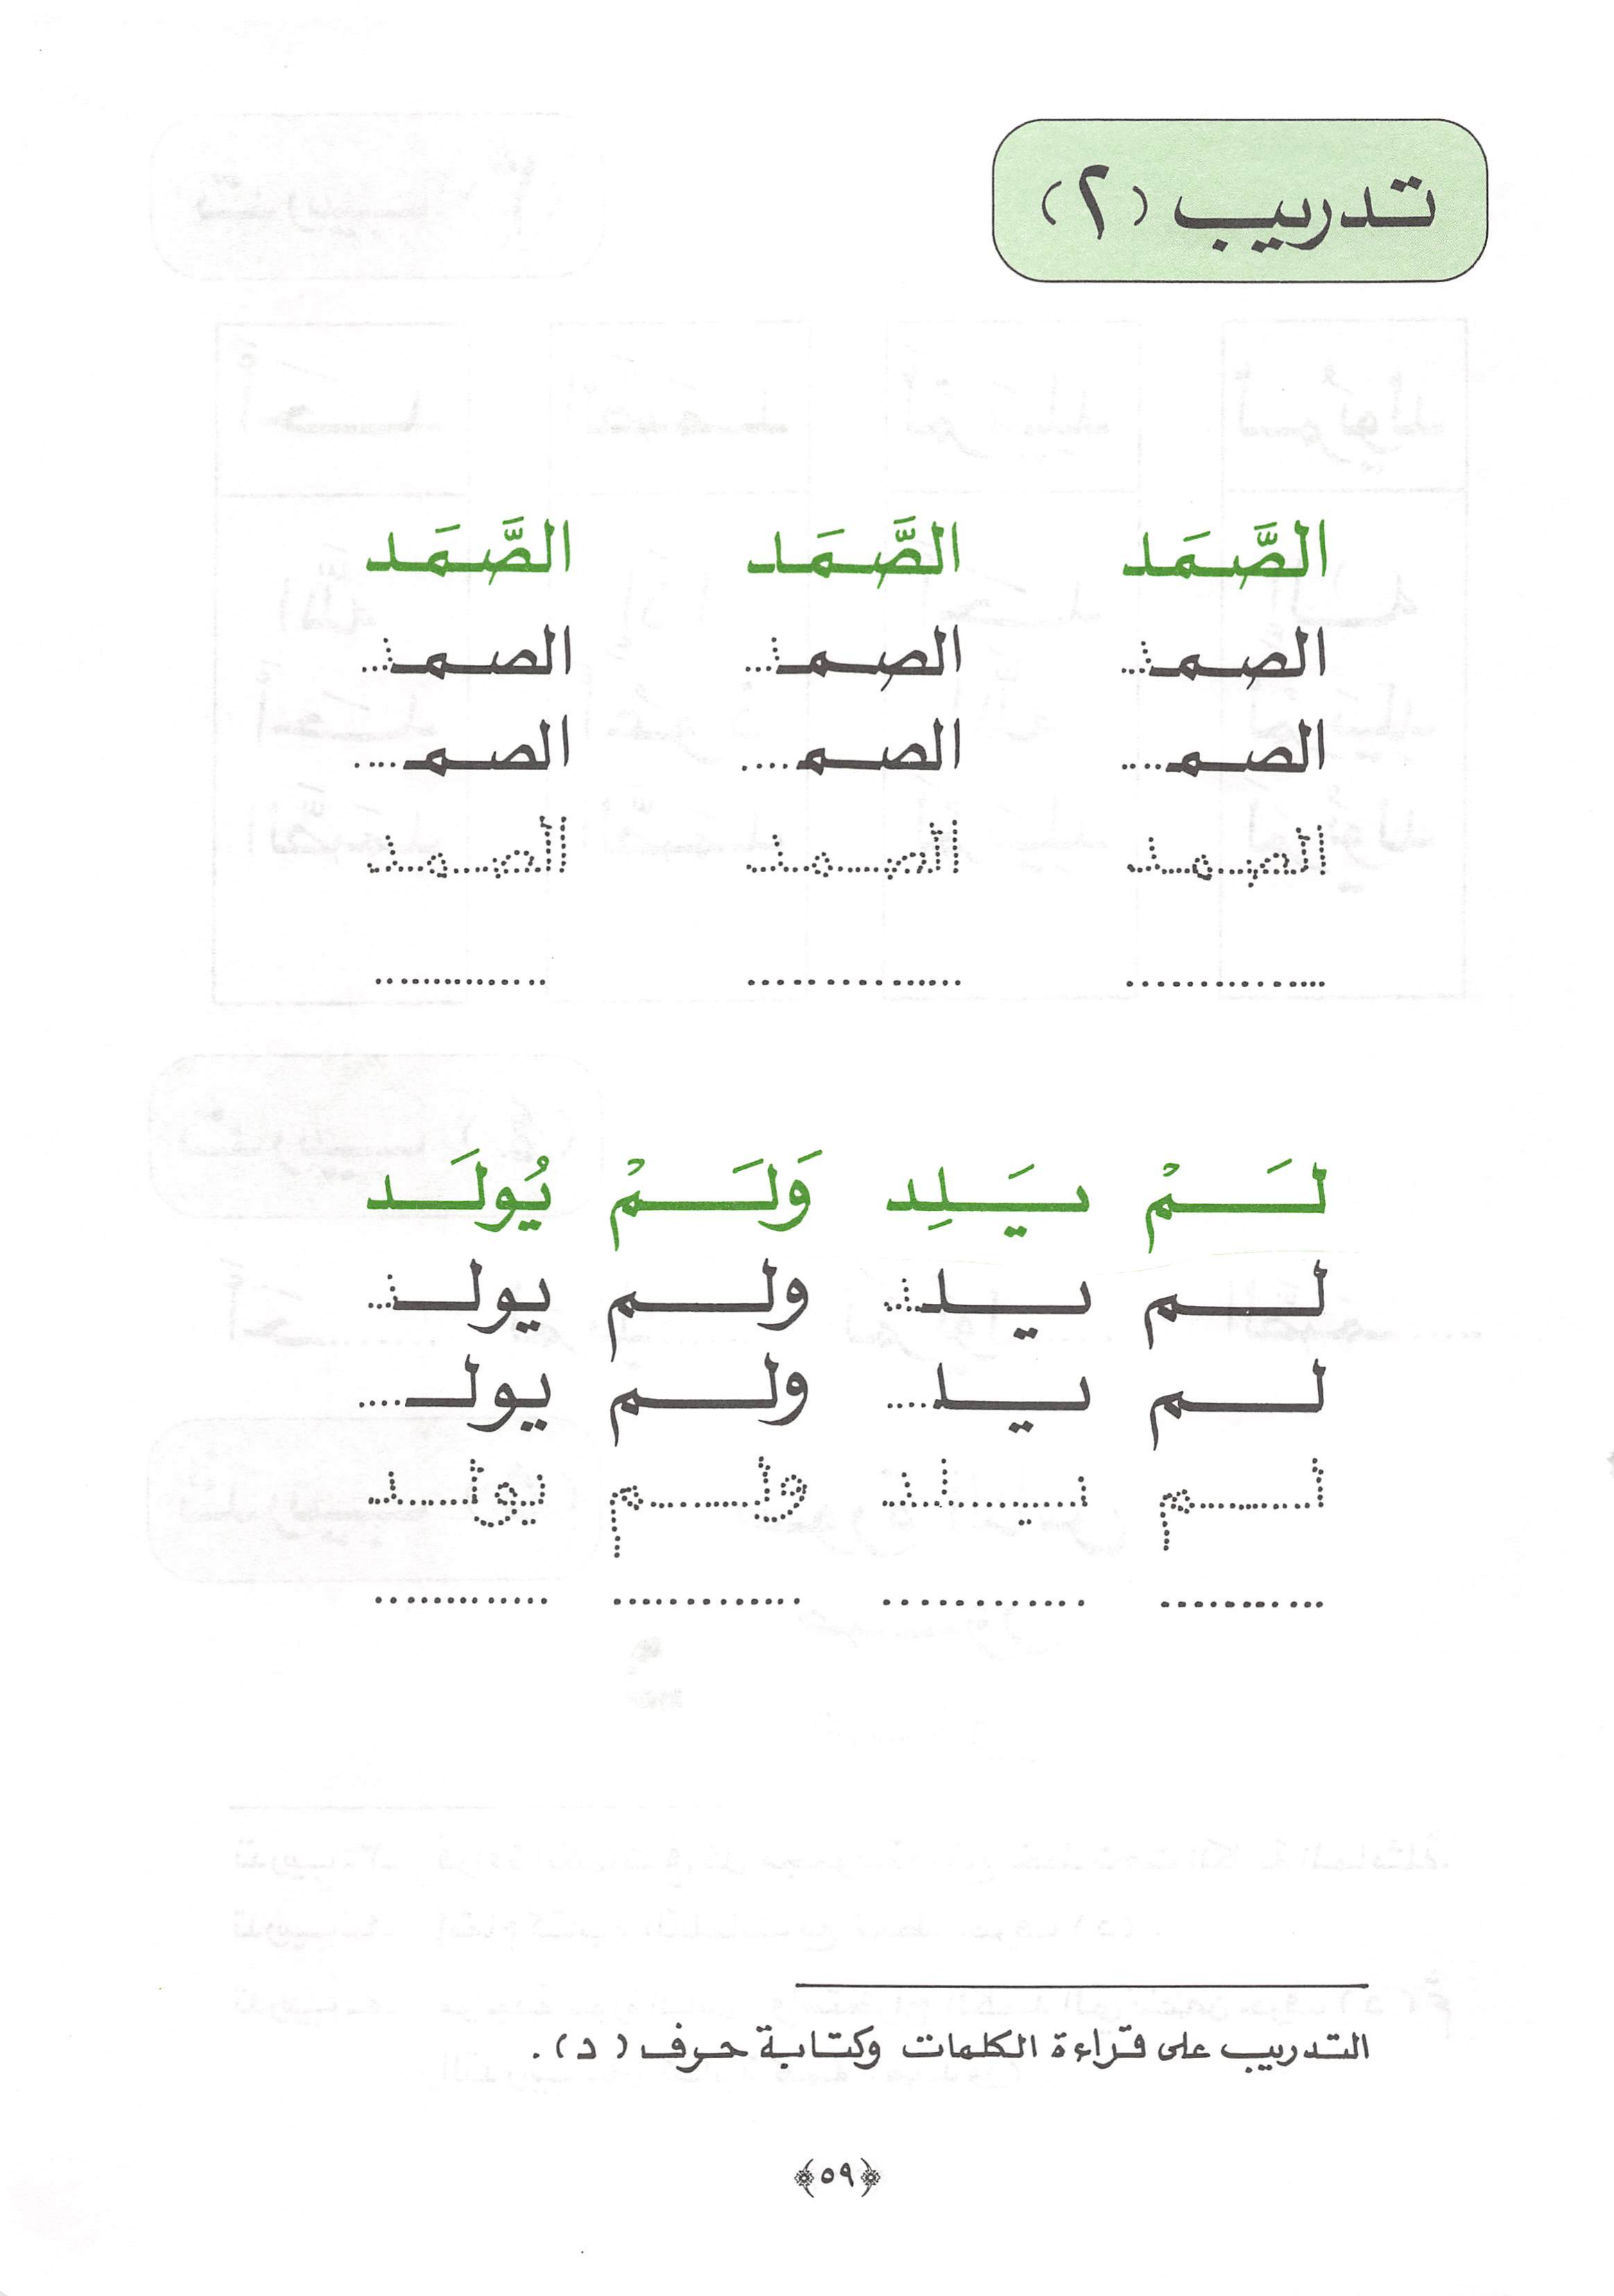 تدريب (٢)
الصَّمَد الصَّمَد الصَّمَد
الصمد... الصمد... الصمد...
الصمـ.... الصمـ.... الصمـ....
الصمد الصمد الصمد
.............. .............. ..............
لَمْ يَلِد وَلَمْ يُولَد
لم يلد... ولم يولد...
لم يلـ.... ولم يولـ....
لم يلد ولم يولد
............ ............ ............ ............
التدريب على قراءة الكلمات وكتابة حرف (د).
﴿٥٩﴾